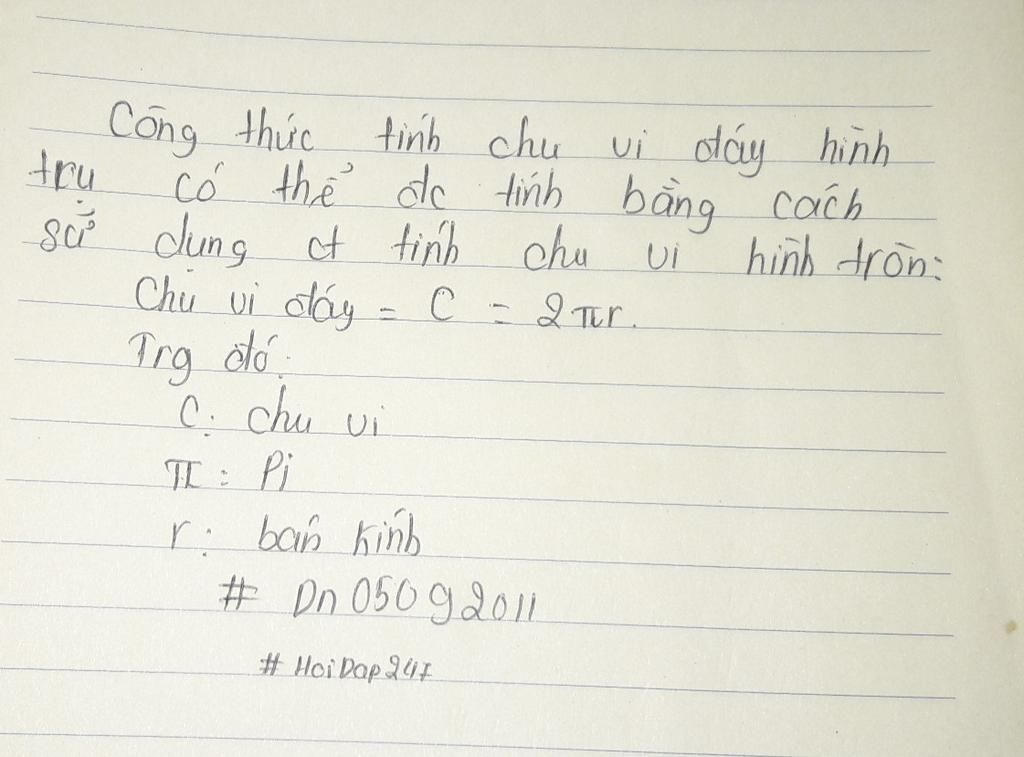 Công thức tính chu vi đáy hình
trụ có thể đc tính bằng cách
sử dụng ct tính chu vi hình tròn:
Chu vi đáy = C = 2πr.
Trg đó:
C: chu vi
π: Pi
r: bán kính
# Dn05092011
# HoiDap247